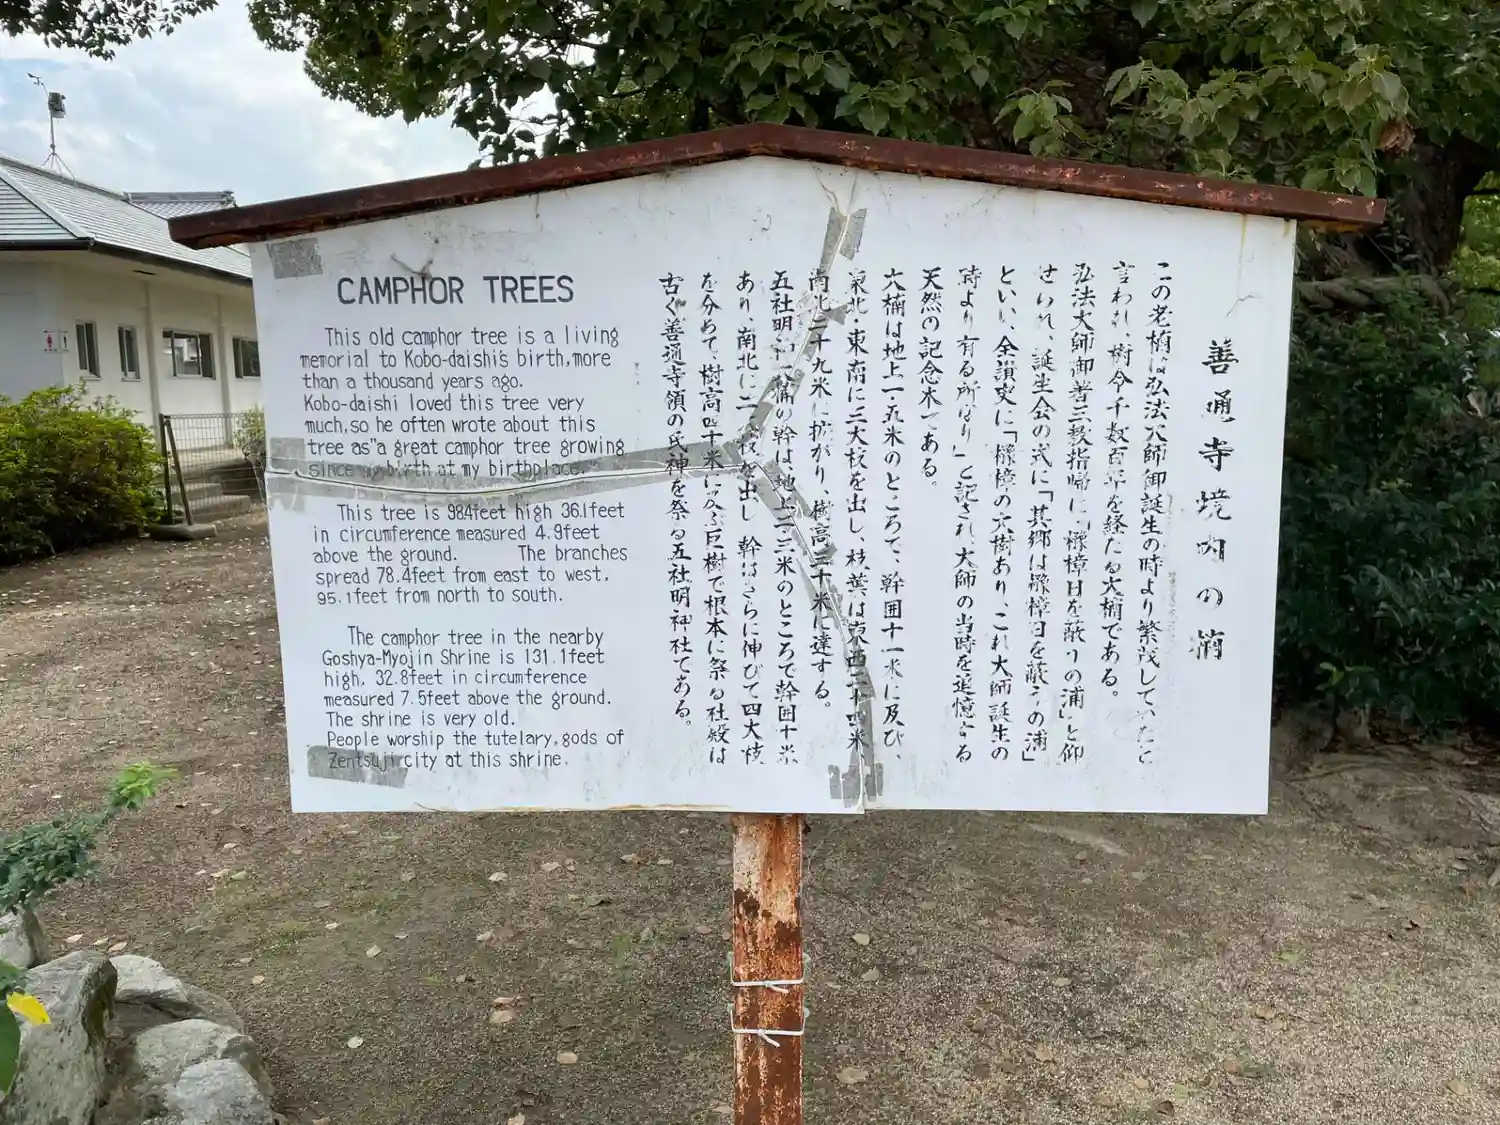 CAMPHOR TREES
This old camphor tree is a living
memorial to Kobo-daishi's birth, more
than a thousand years ago.
Kobo-daishi loved this tree very
much, so he often wrote about this
tree as "a great camphor tree growing
since my birth at my birthplace."
This tree is 98.4feet high 36.1feet
in circumference measured 4.9feet
above the ground. The branches
spread 78.4feet from east to west,
95.1feet from north to south.
The camphor tree in the nearby
Goshya-Myojin Shrine is 131.1feet
high, 32.8feet in circumference
measured 7.5feet above the ground.
The shrine is very old.
People worship the tutelary, gods of
Zentsuji city at this shrine.
善通寺境内の楠
この老楠は弘法大師御誕生の時より繁茂していたと
言われ、樹令千数百年を経たる大楠である。
弘法大師御著三教指帰に「櫲樟日を蔽うの浦」と仰
せられ、誕生会の式に「其郷は櫲樟日を蔽うの浦」
といい、全讃史に「櫲樟の大樹あり、これ大師誕生の
時より有る所なり」と記され大師の当時を追憶する
天然の記念木である。
大楠は地上一・五米のところで、幹囲十一米に及び、
東北、東南に三大枝を出し、枝葉は東西二十四米
南北二十九米に拡がり、樹高三十米に達する。
五社明神楠の幹は、地上二・三米のところで幹囲十米
あり、南北に二枝を出し幹はさらに伸びて四大枝
を分めて、樹高四十米に及ぶ巨樹で根本に祭る社殿は
古く善通寺領の氏神を祭る五社明神社である。